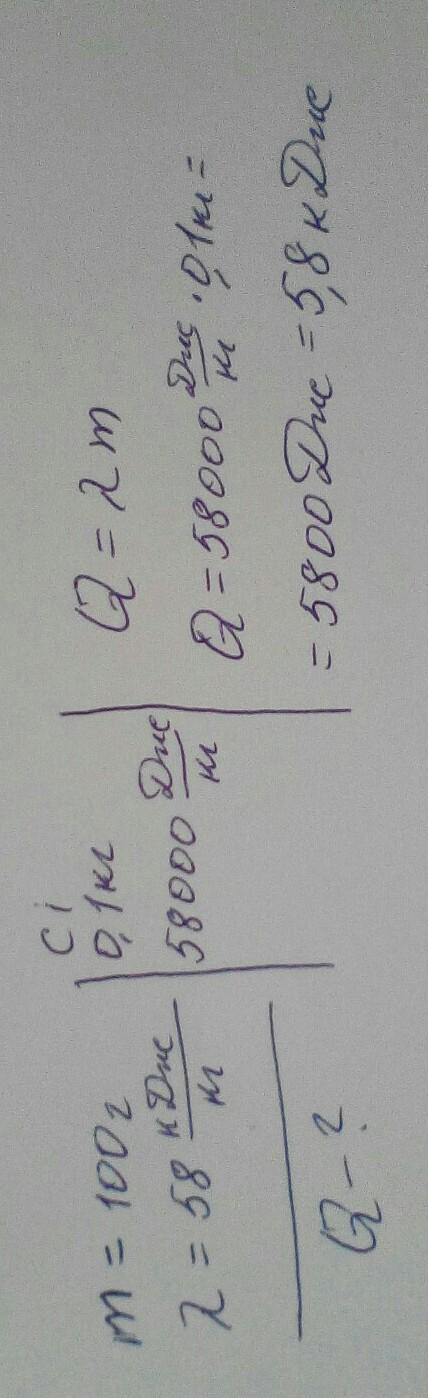 m = 100г
λ = 58 кДж/кг
Q - ?
Сі
0,1кг
58000 Дж/кг
Q = λm
Q = 58000 Дж/кг · 0,1кг =
= 5800 Дж = 5,8 кДж